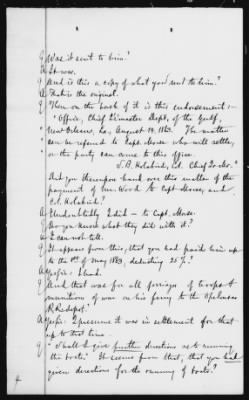 Q Was it sent to him?
A It was.
Q And is this a copy of what you sent to him?
A That is the original.
Q Then on the back of it is this endorsement:-
"Office, Chief Qr. Master Dept. of the Gulf,
New Orleans, La., August 19, 1863. The matter
can be referred to Capt. Morse who will settle,
or the party can come to this office.
S. B. Holabird, Col. Chief Qr. Mr."
And you thereupon hand over this matter of the
payment of Mr. Wood to Capt Morse, and
Col. Holabird?
A Undoubtedly I did – to Capt. Morse.
Q Do you know what they did with it?
A I can not tell.
Q It appears from this, that you had paid him up
to the 1st of May 1863, deducting 25 %?
A Yes sir: I had.
Q And that was for all ferriage of troops &
munitions of war on his ferry to the Opelousas
R.R. depot?
A Yes sir: I presume it was in settlement for that
up to that time.
Q "Shall I give further directions as to running
the boats." It seems from that, that you had
given directions for the running of boats?